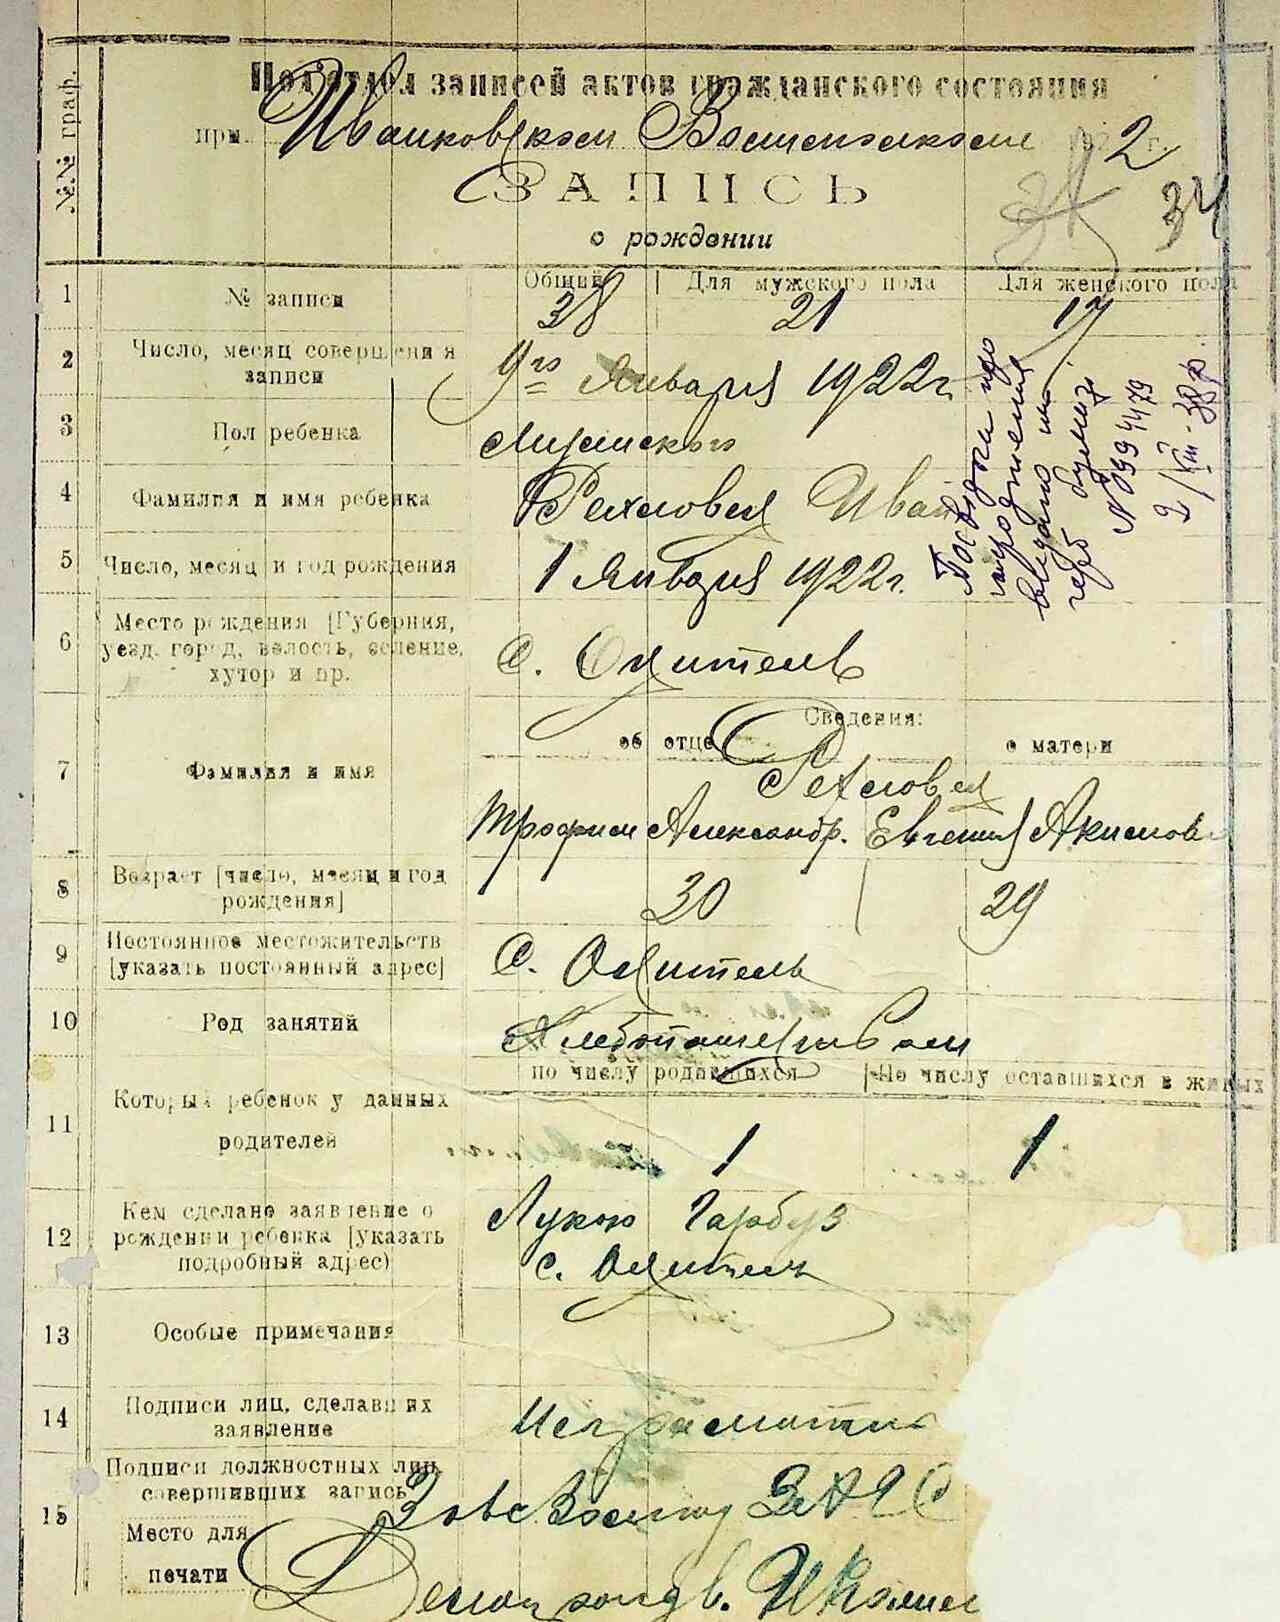 №№ граф.
Подотдел записей актов гражданского состояния
при Иванковском Волисполкоме 1922 г.
34
ЗАПИСЬ
о рождении
1 № записи Общий Для мужского пола Для женского пола
38 21 17
2 Число, месяц совершения записи
9го Января 1922 г.
3 Пол ребенка
Мужского
4 Фамилия и имя ребенка
Иван
5 Число, месяц и год рождения
1 Января 1922 г.
6 Место рождения [Губерния, уезд, город, волость, селение, хутор и пр.
С.
Посвідку про
народження
видано
герб
№ 094479
2/VIII-38р.
Сведения:
об отце о матери
7 Фамилия и имя
Трофим Александр. Евгения Акимов
8 Возраст [число, месяц и год рождения]
30 29
9 Постоянное местожительств [указать постоянный адрес]
С.
10 Род занятий
Хлебопашеством
по числу родившихся По числу оставшихся в живых
11 Который ребенок у данных родителей
1 1
12 Кем сделано заявление о рождении ребенка [указать подробный адрес)
Лукою Гарбуз
с.
13 Особые примечания
14 Подписи лиц, сделавших заявление
Неграмотн
15 Подписи должностных лиц, совершивших запись
ЗАГС
Место для
печати